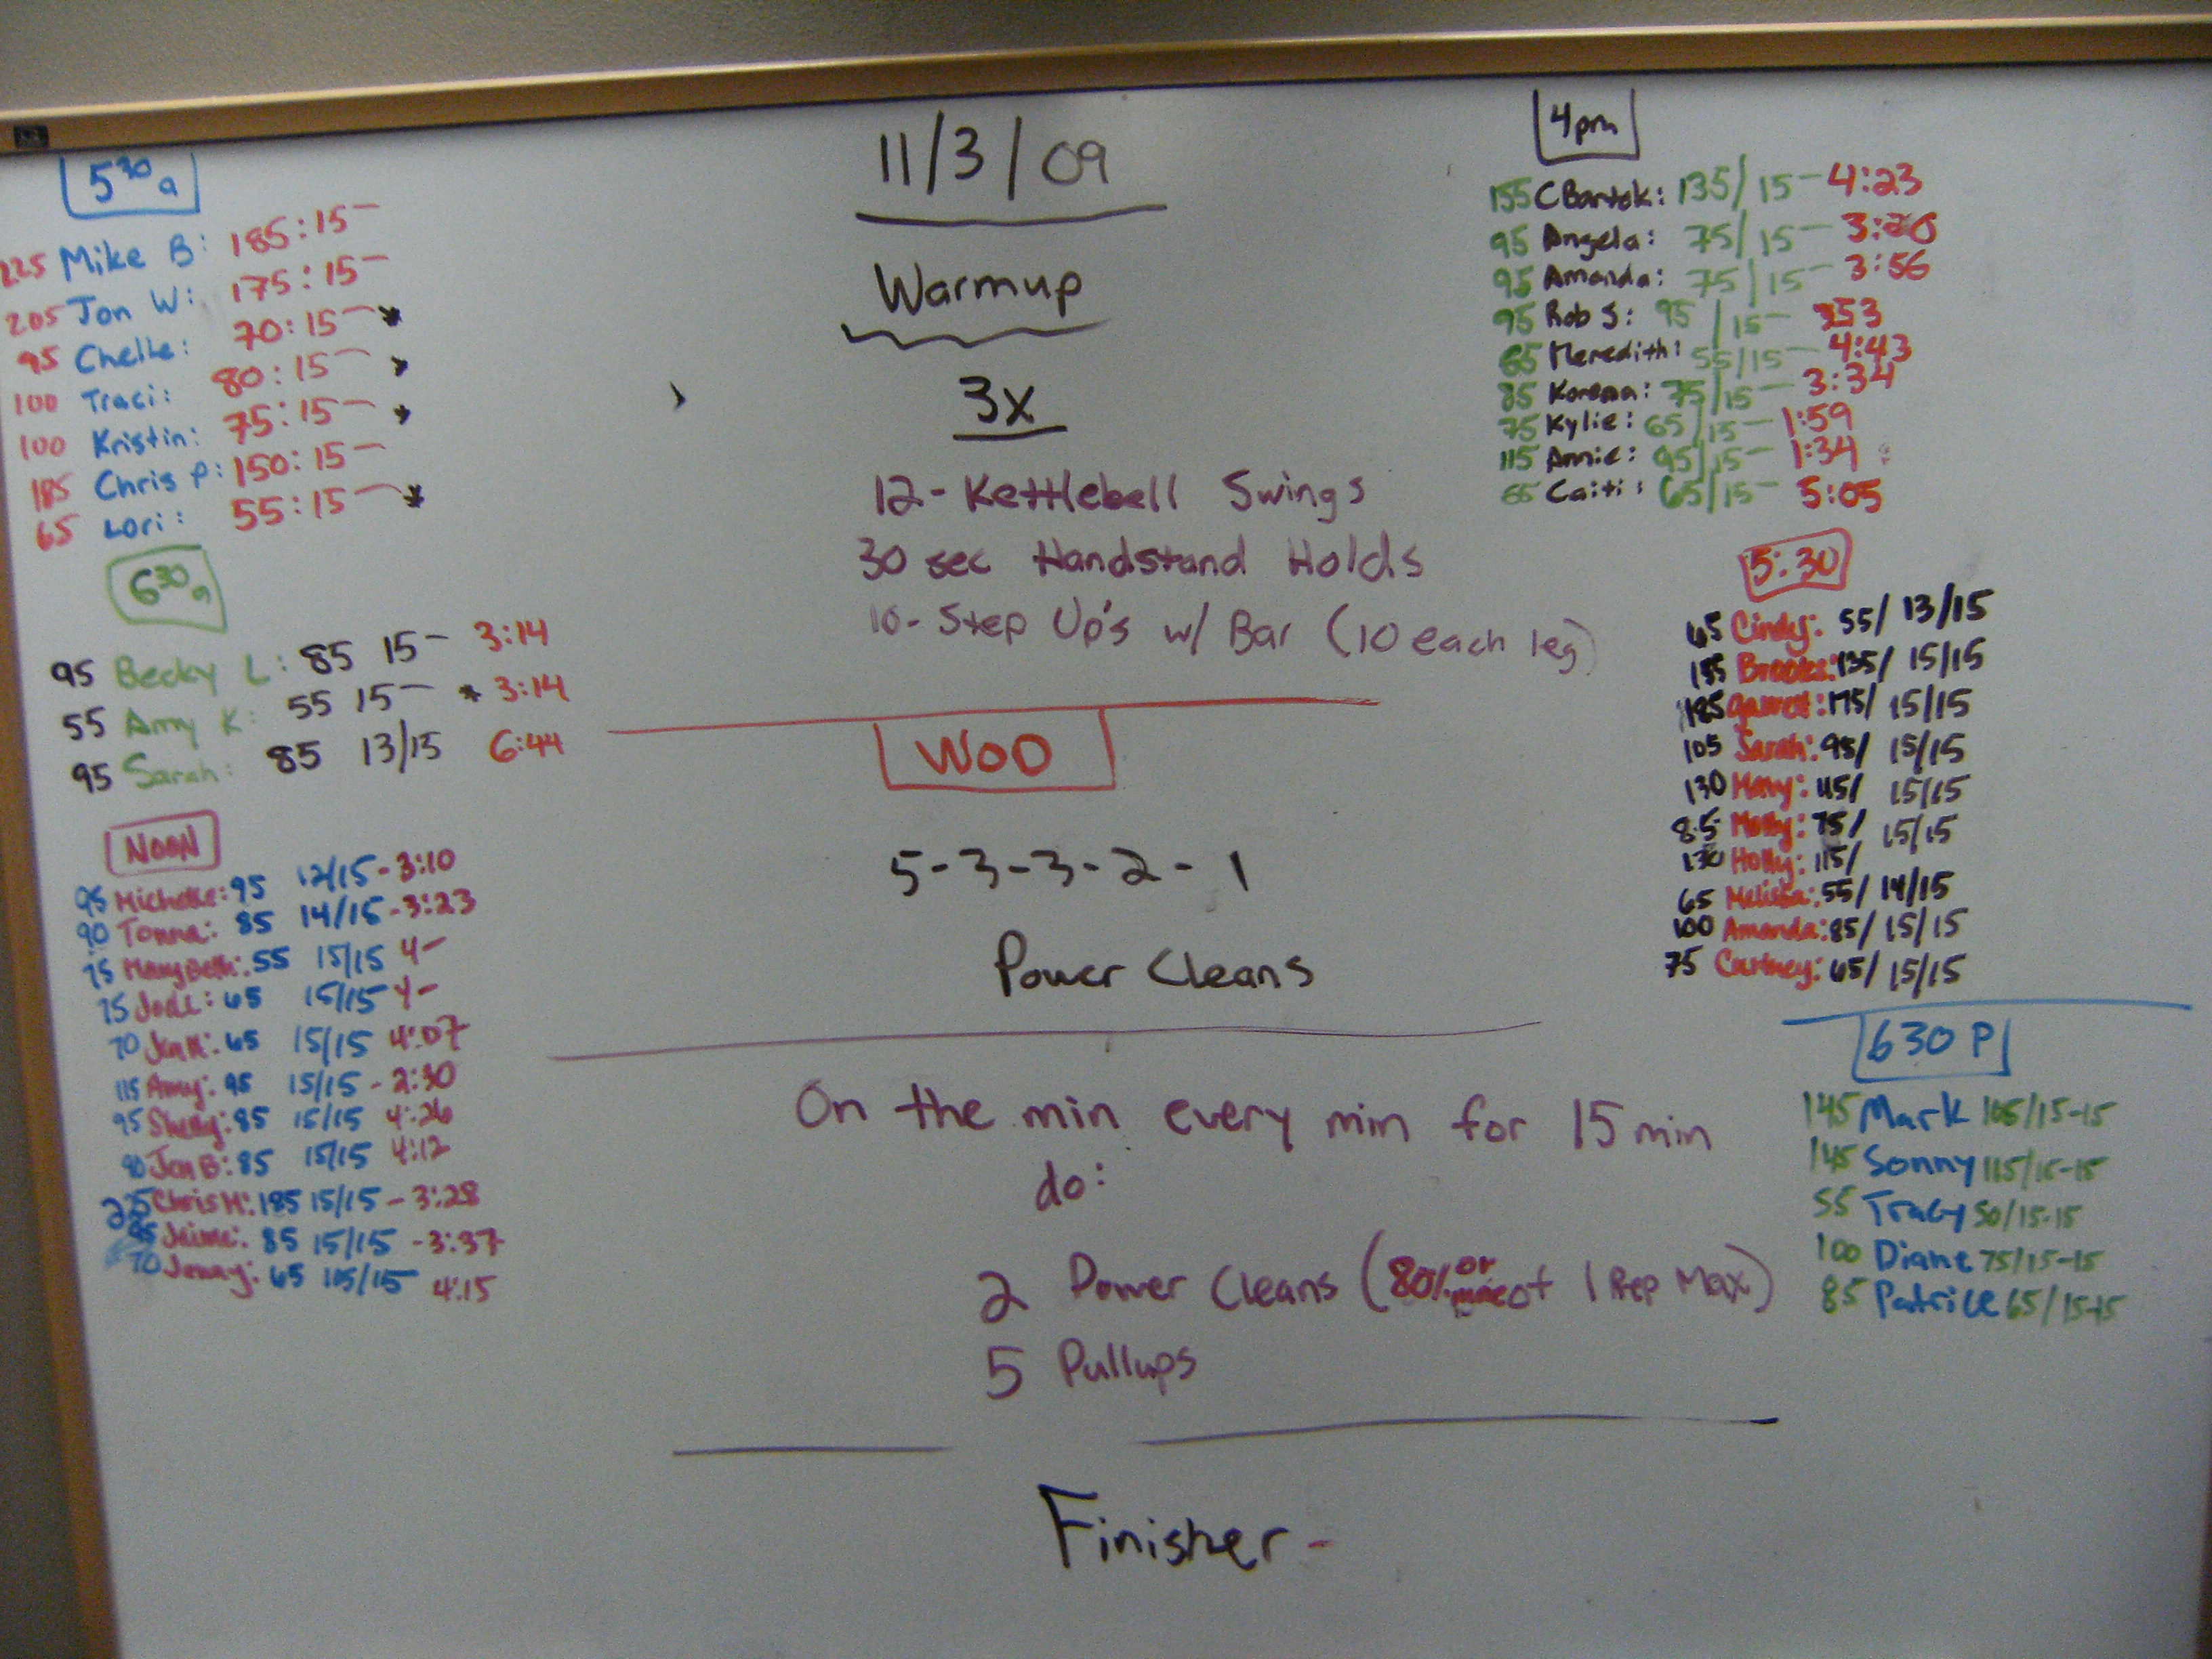 11/3/09
Warmup
3x
12- Kettlebell Swings
30 sec Handstand Holds
10- Step Up's w/ Bar (10 each leg)
WOD
5-3-3-2-1
Power Cleans
On the min every min for 15 min
do:
2 Power Cleans (80% or more of 1 Rep Max)
5 Pullups
Finisher -
5 30 a
225 Mike B: 185:15-
205 Jon W: 175:15-
95 Chelle: 70:15- *
100 Traci: 80:15- *
100 Kristin: 75:15- *
185 Chris P: 150:15-
65 Lori: 55:15- *
6 30 a
95 Becky L: 85 15- 3:14
55 Amy K: 55 15- * 3:14
95 Sarah: 85 13/15 6:44
NOON
95 Michelle: 95 12/15 - 3:10
90 Tonna: 85 14/15 - 3:23
75 MaryBeth: 55 15/15 4-
75 65 15/15 4-
70 Jen K: 65 15/15 4:07
115 Amy: 95 15/15 - 2:30
95 Shelly: 85 15/15 4:26
90 Jen B: 85 15/15 4:12
225 Chris H: 185 15/15 - 3:28
95 Jaime: 85 15/15 - 3:37
70 Jenny: 65 15/15 4:15
4pm
155 C Bartok: 135/15- 4:23
95 Angela: 75/15- 3:20
95 Amanda: 75/15- 3:56
95 Rob S: 95/15- 353
65 Meredith: 55/15- 4:43
85 Korena: 75/15- 3:34
75 Kylie: 65/15- 1:59
115 Annie: 95/15- 1:34
65 Caiti: 65/15- 5:05
5:30
65 Cindy: 55/ 13/15
155 Brooks: 135/ 15/15
185 Garret: 175/ 15/15
105 Sarah: 95/ 15/15
130 Mary: 115/ 15/15
85 Molly: 75/ 15/15
130 Holly: 115/
65 Melissa: 55/ 14/15
100 Amanda: 85/ 15/15
75 Courtney: 65/ 15/15
630 P
145 Mark 105/15-15
145 Sonny 115/15-15
55 Tracy 50/15-15
100 Diane 75/15-15
85 Patrice 65/15-15